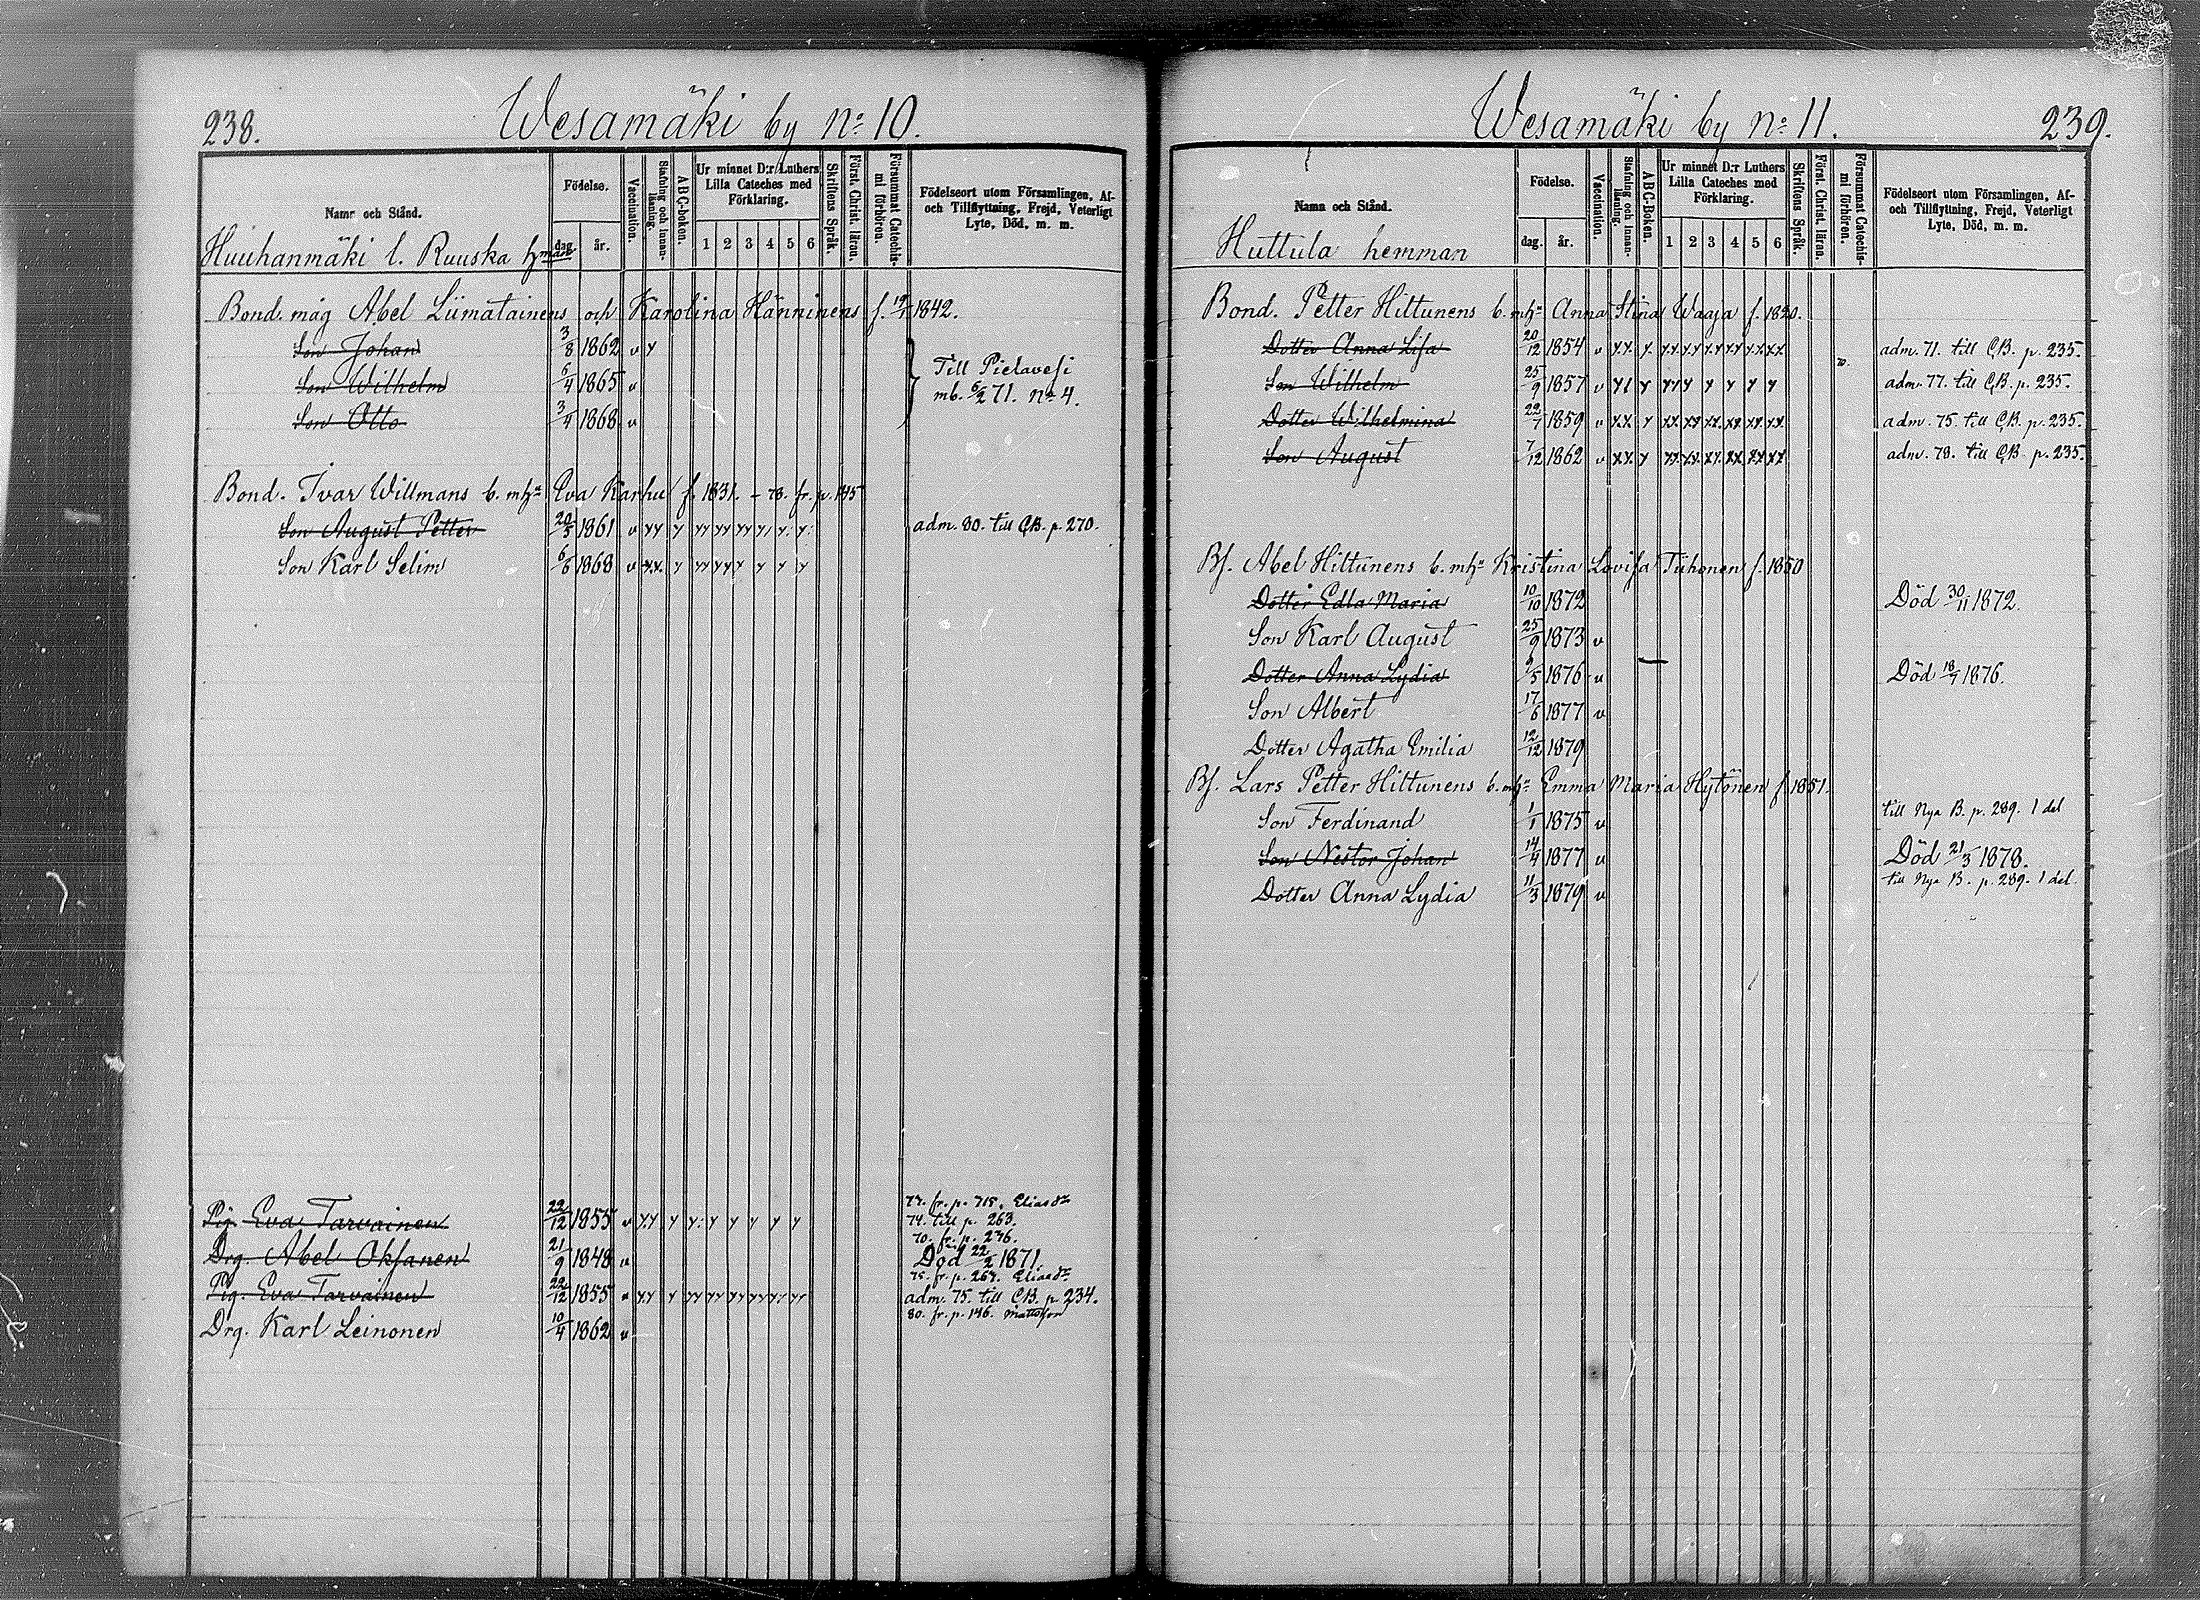 238.
Wesamäki by No 10.
Namn och Stånd.
Födelse.
dag.
år.
Vaccination.
Stafning och Innan-läsning.
ABC-boken.
Ur minnet D:r Luthers
Lilla Cateches med
Förklaring.
1 2 3 4 5 6
Skriftens Språk.
Först. Christ. läran.
Försummat Catechismi förhören.
Födelseort utom Församlingen, Af-
och Tillflyttning, Frejd, Veterligt
Lyte, Död, m. m.
Huuhanmäki l. Ruuska hman
Bond. måg Abel Liimatainens och Karolina Hänninens f. 1842.
Son Johan 3/8 1862 v y
Son Wilhelm 6/4 1865 v
Till Pielavesi
mb. 6/2 71. No 4.
Son Otto 3/4 1868 v
Bond. Ivar Willmans b. mhn Eva Karhu f. 1831. - 78. fr. p. 145
Son August Petter 20/5 1861 v adm. 80. till C.B. p. 270.
Son Karl Selim 6/6 1868 v
77. fr. p. 715. Eliasdr
Pig. Eva Tarvainen 22/12 1855 v 74. till p. 263.
70. fr. p. 236.
Drg. Abel Oksanen 21/9 1848 v Död 22/2 1871.
75. fr. p. 267. Eliasdr
Pig. Eva Tarvainen 22/12 1855 v adm. 75. till C.B. p. 234.
80. fr. p. 146. Mattsson
Drg. Karl Leinonen 10/4 1862 v
Wesamäki by No 11.
239.
Namn och Stånd.
Födelse.
dag.
år.
Vaccination.
Stafning och Innan-läsning.
ABC-Boken.
Ur minnet D:r Luthers
Lilla Cateches med
Förklaring.
1 2 3 4 5 6
Skriftens Språk.
Först. Christ. läran.
Försummat Catechismi förhören.
Födelseort utom Församlingen, Af-
och Tillflyttning, Frejd, Veterligt
Lyte, Död, m. m.
Huttula hemman
Bond. Petter Hiltunens b. mhn Anna Stina Waaja f. 1820.
Dotter Anna Lisa 20/12 1854 v adm. 71. till C.B. p. 235.
Son Wilhelm 25/9 1857 v adm. 77. till C.B. p. 235.
Dotter Wilhelmina 22/7 1859 v adm. 75. till C.B. p. 235.
Son August 7/12 1862 v adm. 78. till C.B. p. 235.
Bs. Abel Hiltunens b. mhn Kristina Lovisa Tiihonen f. 1850
Dotter Edla Maria 10/10 1872 Död 30/11 1872.
Son Karl August 25/9 1873 v
Dotter Anna Lydia 9/5 1876 v Död 18/7 1876.
Son Albert 17/6 1877 v
Dotter Agatha Emilia 12/12 1879
Bs. Lars Petter Hiltunens b. mhn Emma Maria Hytönen f. 1851.
Son Ferdinand 1/1 1875 v till Nya B. p. 289. 1 del
Son Nestor Johan 14/4 1877 v Död 21/3 1878.
Dotter Anna Lydia 11/3 1879 v till Nya B. p. 289. 1 del.